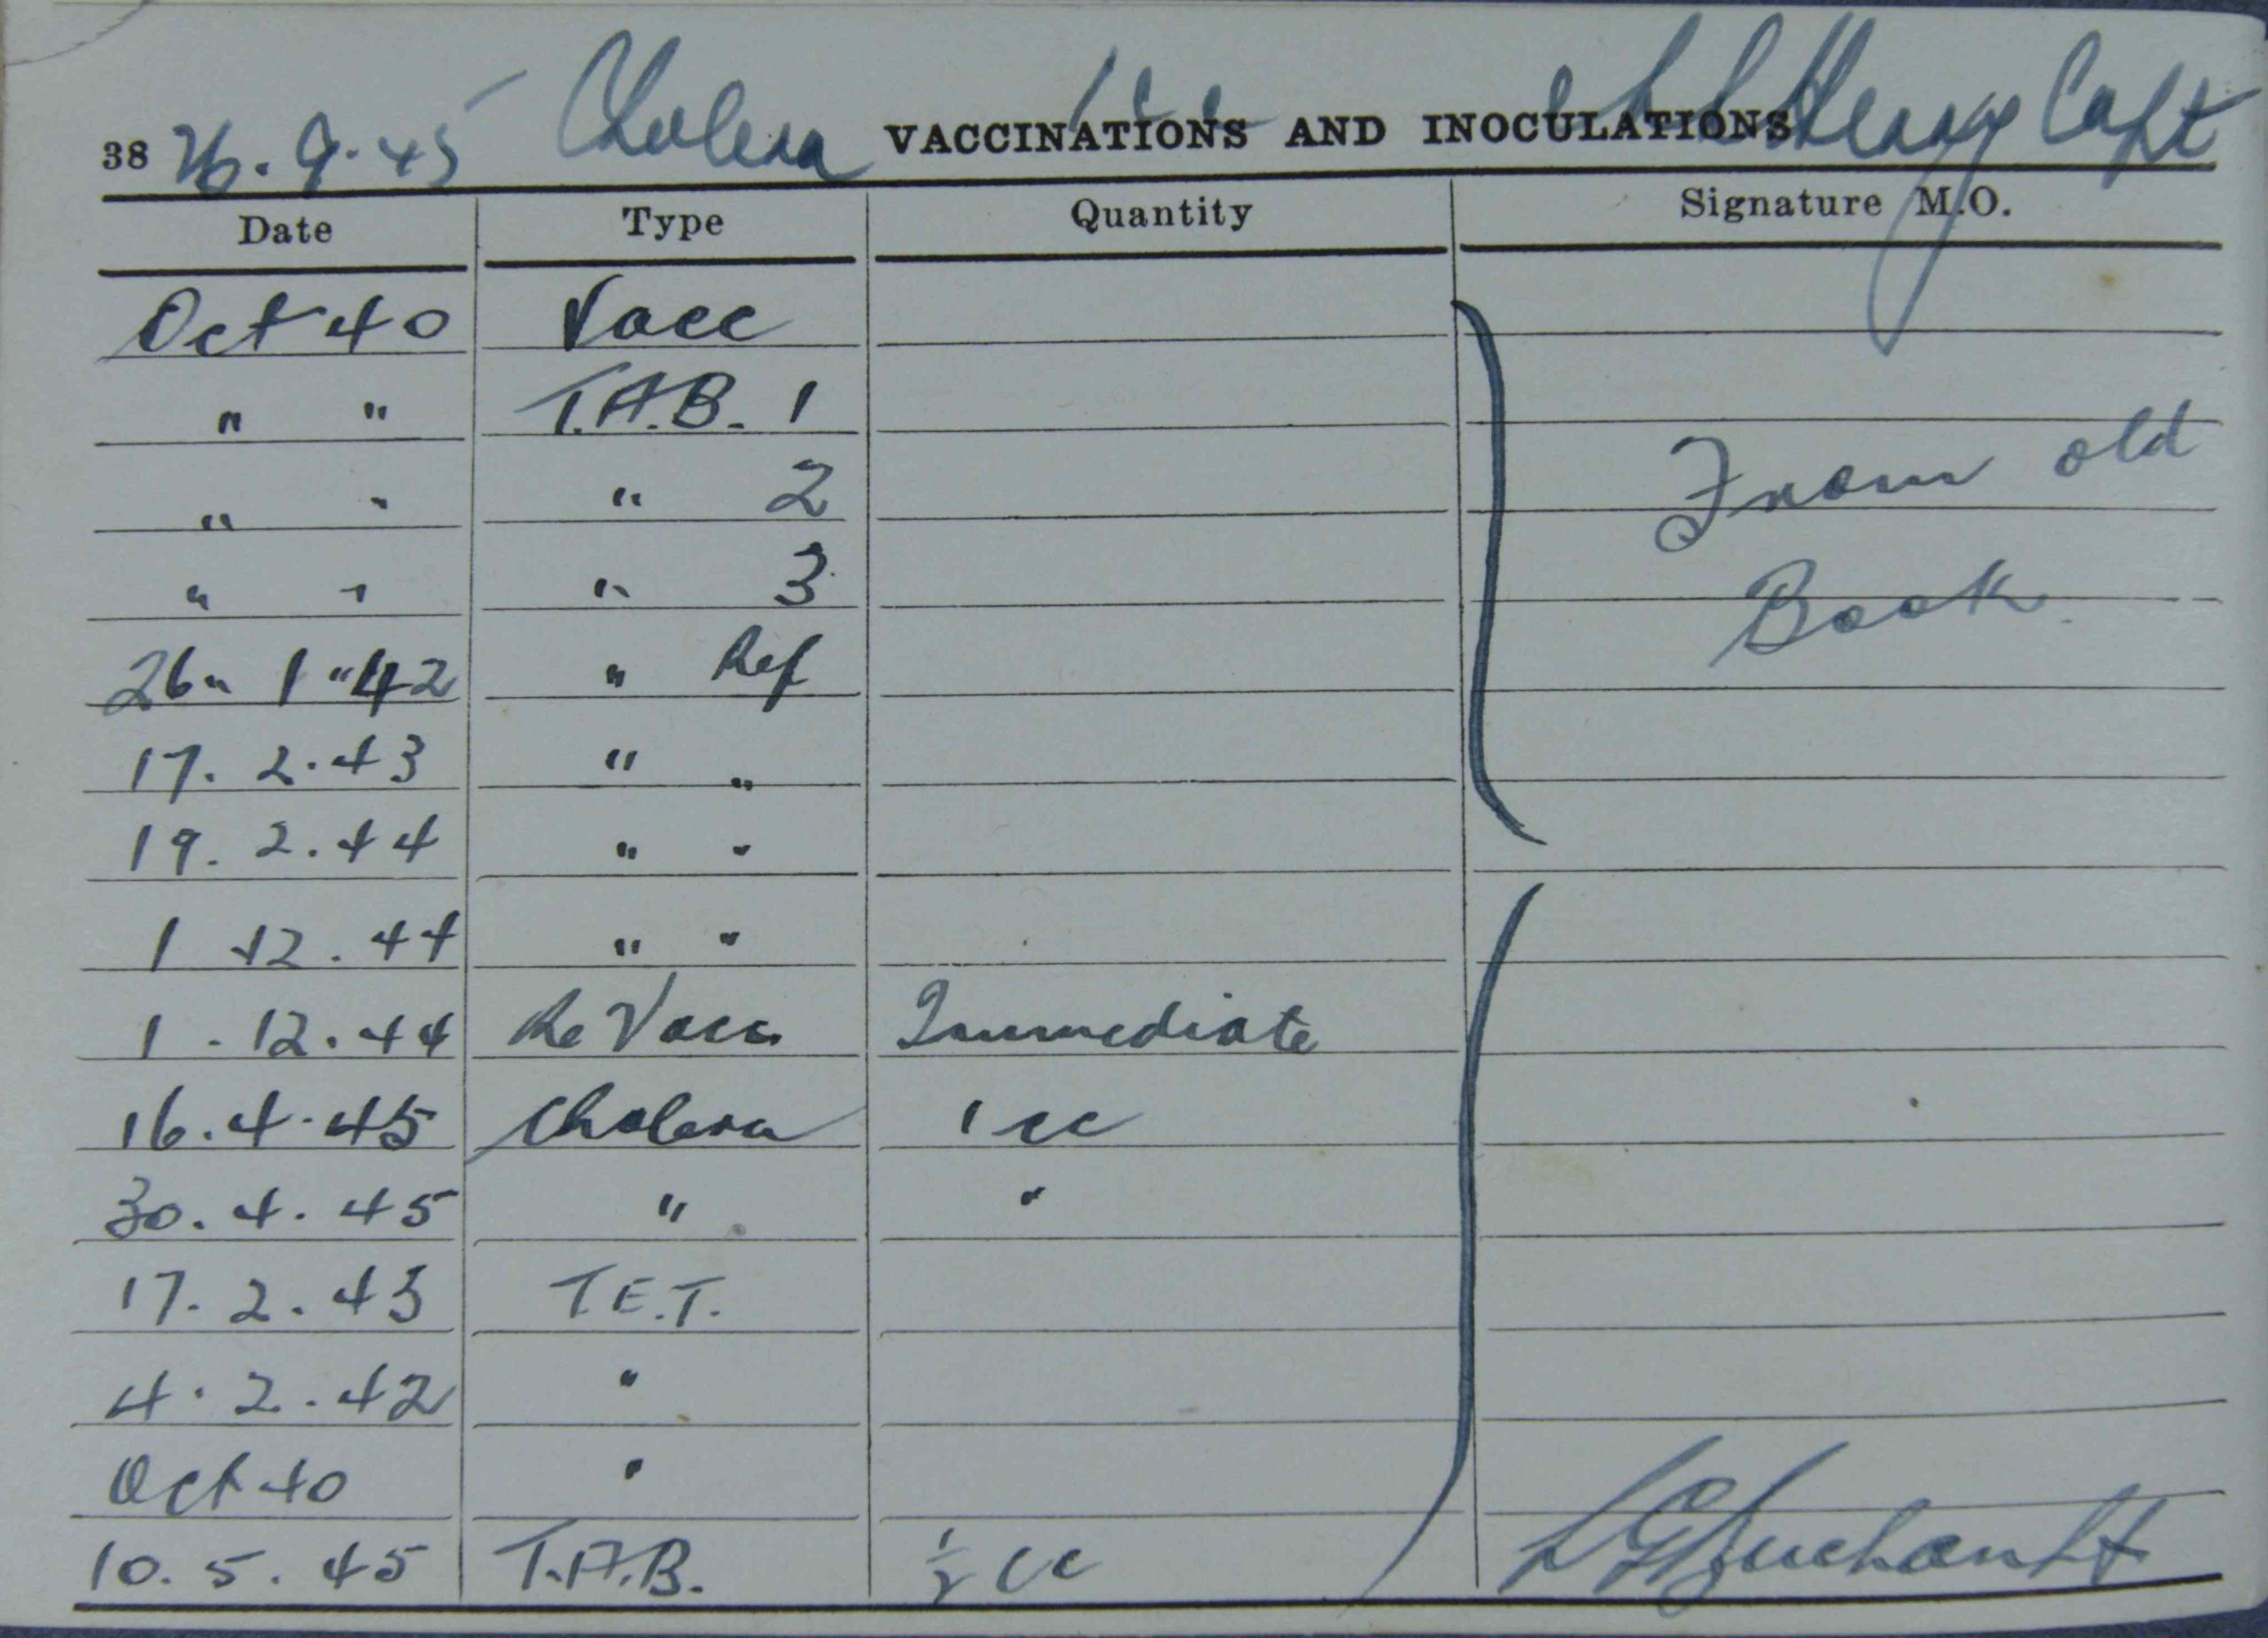 26.9.45 Cholera 1cc Capt
38 VACCINATIONS AND INOCULATIONS
Date Type Quantity Signature M.O.
Oct 40 Vacc
" " T.A.B. 1
" " " 2 From old
" " " 3 Book.
26" 1 "42 " Ref
17. 2. 43 " "
19. 2. 44 " "
1 12. 44 " "
1. 12. 44 Re Vacc Immediate
16. 4. 45 Cholera 1 cc
30. 4. 45 " "
17. 2. 43 T.E.T.
4. 2. 42 "
Oct 40 "
10. 5. 45 T.A.B. ½ cc